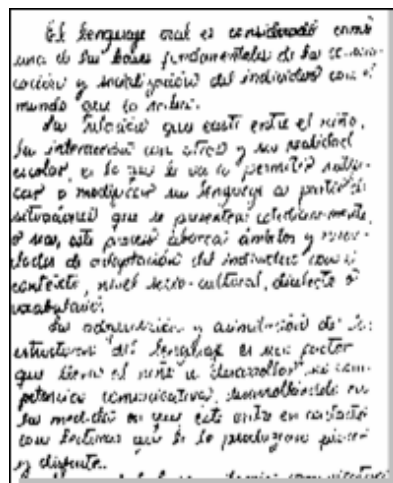 El lenguaje oral es considerado como
una de las bases fundamentales de la comuni-
cación y socialización del individuo con el
mundo que lo rodea.
La relación que existe entre el niño,
su interacción con otros y su realidad
escolar, es lo que le va a permitir
o modificar su lenguaje a partir de
situaciones que se presentan cotidianamente,
o sea, este proceso abarca ámbitos y
de adaptación del individuo con el
contexto, nivel socio-cultural, dialecto o
vocabulario.
La adquisición y asimilación de las
estructuras del lenguaje es un factor
que lleva al niño a desarrollar su com-
petencia comunicativa, desarrollándola en
la medida en que este entre en contacto
con lecturas que le produzcan placer
y disfrute.